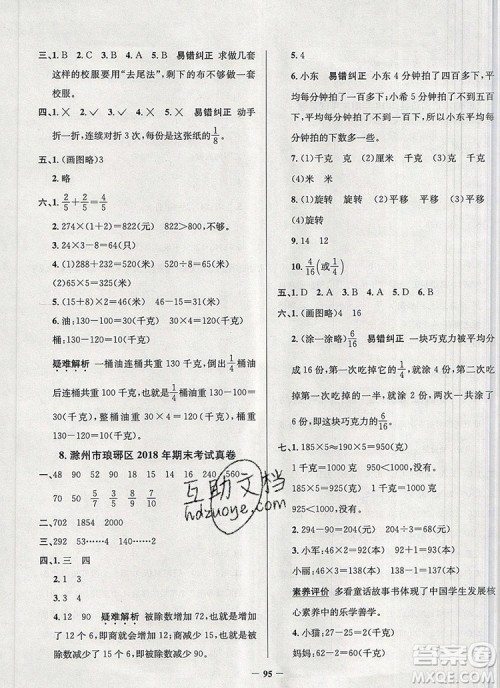 三、1. B 2. A 3. B 4. A 易错纠正 求做几套
这样的校服要用“去尾法”,剩下的布不够做一套
校服。
四、1. × 2. ✓ 3. ✓ 4. × 易错纠正 动手
折一折,连续对折3次,每份是这张纸的1/8。
五、1.(画图略)3
2. 略
六、1. 2/5+2/5=4/5
2. 274×(1+2)=822(元) 822>810 不够。
3. 24×3-8=64(只)
4. (1)288+532=820(米) (2)532-12=520(米)
5. 108×5=540(千米) 46×9=414(千米)
6. 油:130-100=30(千克) 30×4=120(千克)
桶:130-120=10(千克)
疑难解析 一桶油连桶共重130千克,倒去1/4
油后连桶共重100千克,说明这桶油的1/4重
130-100=30(千克),这桶油重30×4=120(千克),
桶重130-120=10(千克)。
8. 滁州市琅琊区2018年期末考试真卷
一、48 90 50 42 90 15 14 16 240 560
2/5 7/8 5/9
二、702 1854
三、292 53……4
四、1. 三 四
2. 1 3
3. 4
4. 12 90 疑难解析 被除数增加72,也就是增加
了12个6,即12×6=72;被除数减少90,也就是
减少了15个6,即15×6=90。
5. 4
6. 小东 易错纠正 小东4分钟拍了四百多下,平
均每分钟拍了一百多下;小希5分钟拍了不到五
百下,平均每分钟拍的不到一百下,所以小东平均
每分钟拍的下数多一些。
7. (1)千克 克 (2)千克 克 (3)千克 千克
(4)米
8. (1)旋转 (2)平移 (3)平移 平移
(4)旋转
9. 14 12
10. 4/16(或1/4)
五、1. D 2. A 3. D 4. D 5. A 6. B
六、1.(画图略)4 16
2.(涂一涂略)6/16 易错纠正 一块巧克力被平均
分成16份,第一次吃掉它的1/4,就是涂4份,第二
次吃掉的比第一次少2份,就是涂2份,一共涂了
6份,即两次共吃了这块巧克力的6/16。
七、1. 185×5=925(千克) 1吨=1000千克
925千克<1000千克
没有。
2. 294-90=204(只) 204÷2=102(只)
3. 小军:46+36=82(本) 82-22=60(本)
小丽:36+22=58(本) 60>58
小军看得多。
素养评价 多看童话故事书体现了中国学生发展
核心素养中的乐学善学。
4. 小猫:57×2=114(下)
妈妈:57×6=342(下)
95
互助文档
hdzuoye.com
答案圈
MXQE.COM